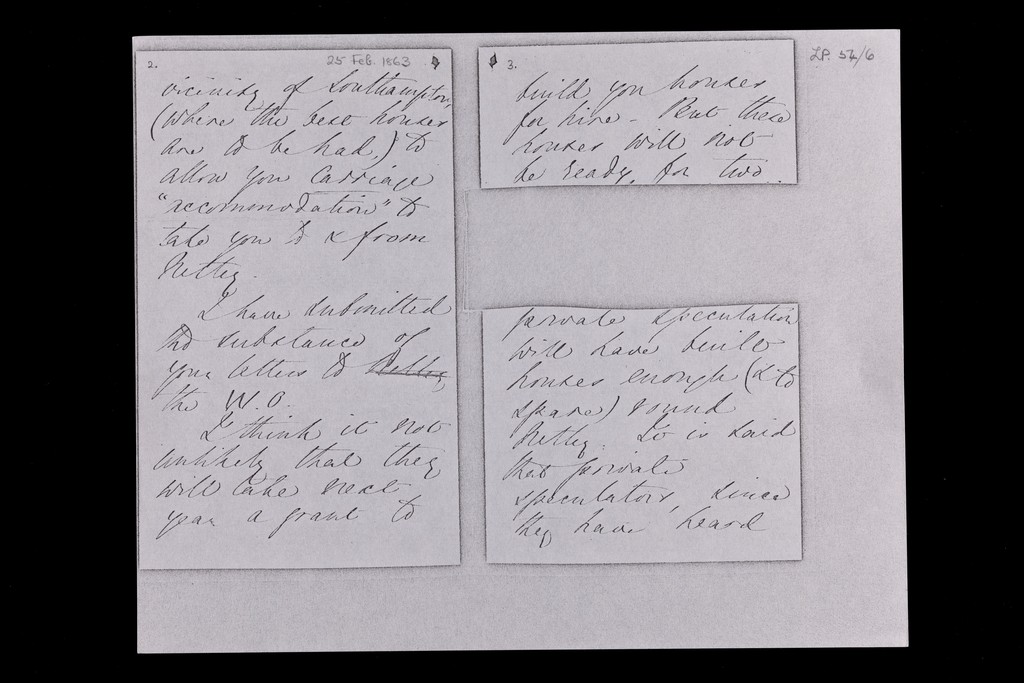 2.
25 Feb. 1863
vicinity of Southampton,
(where the best houses
are to be had,) to
allow you carriage
"accommodation" to
take you to & from
Netley.
I have submitted
the substance of
your letters to Netley,
the W.O.
I think it not
unlikely that they
will take next
year a grant to
3.
build you houses
for hire - But these
houses will not
be ready, for two
private speculation
will have built
houses enough (& to
spare) round
Netley. It is said
that private
speculators, since
they have heard
LP. 54/6